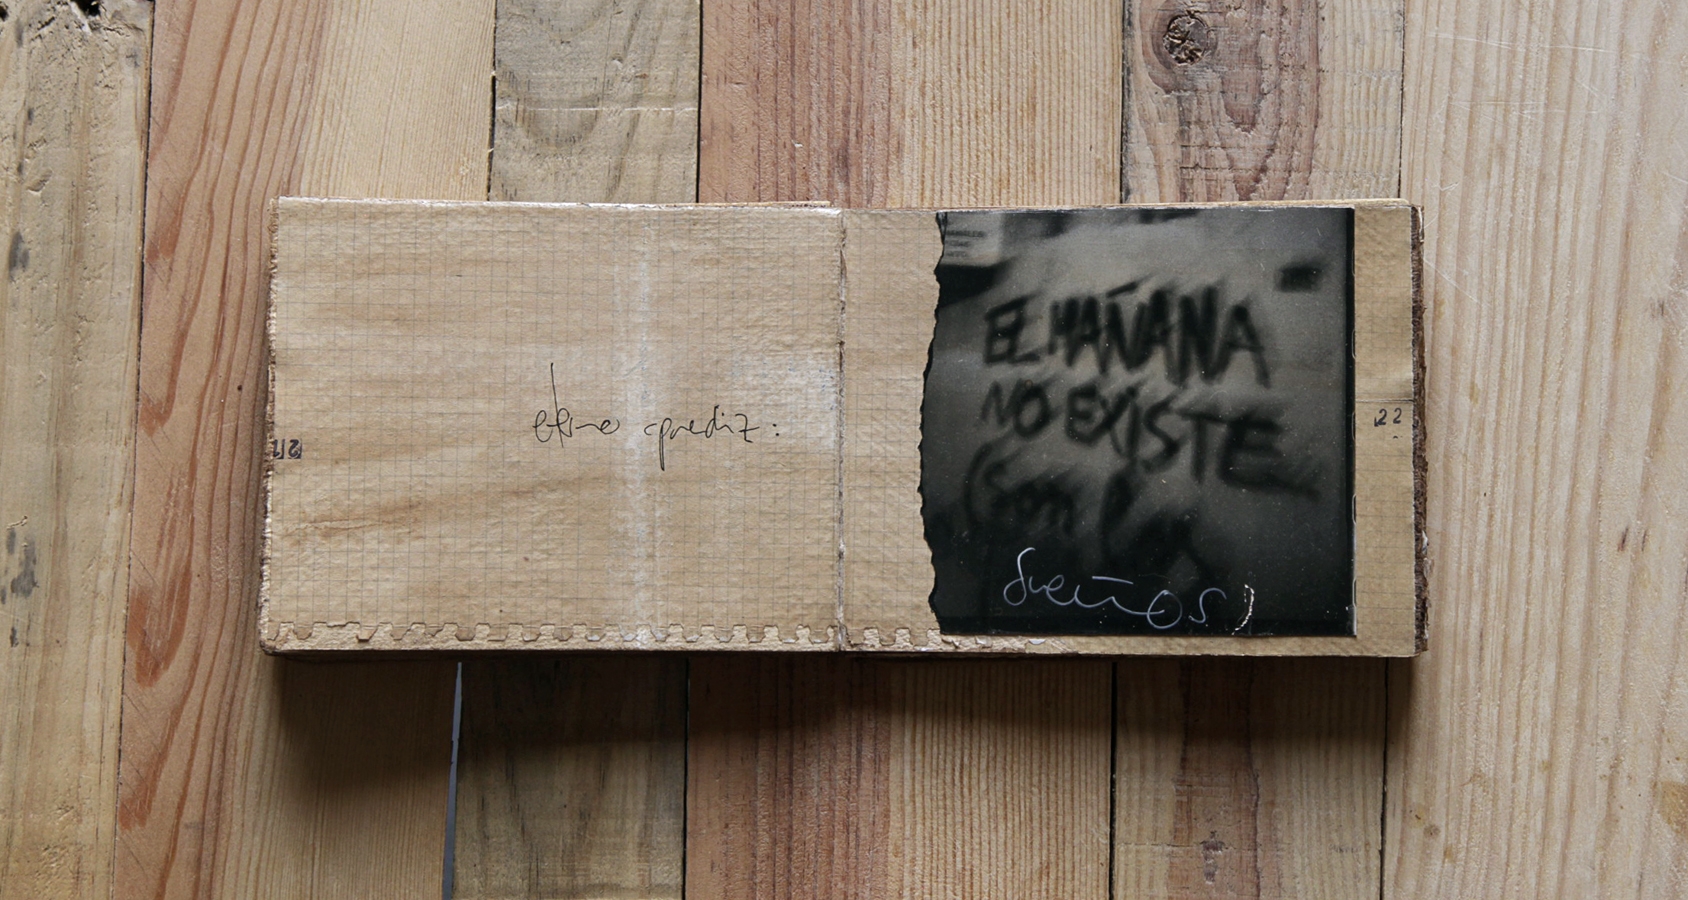 eterno aprediz:
EL MAÑANA
NO EXISTE
(Son los
sueños)
22